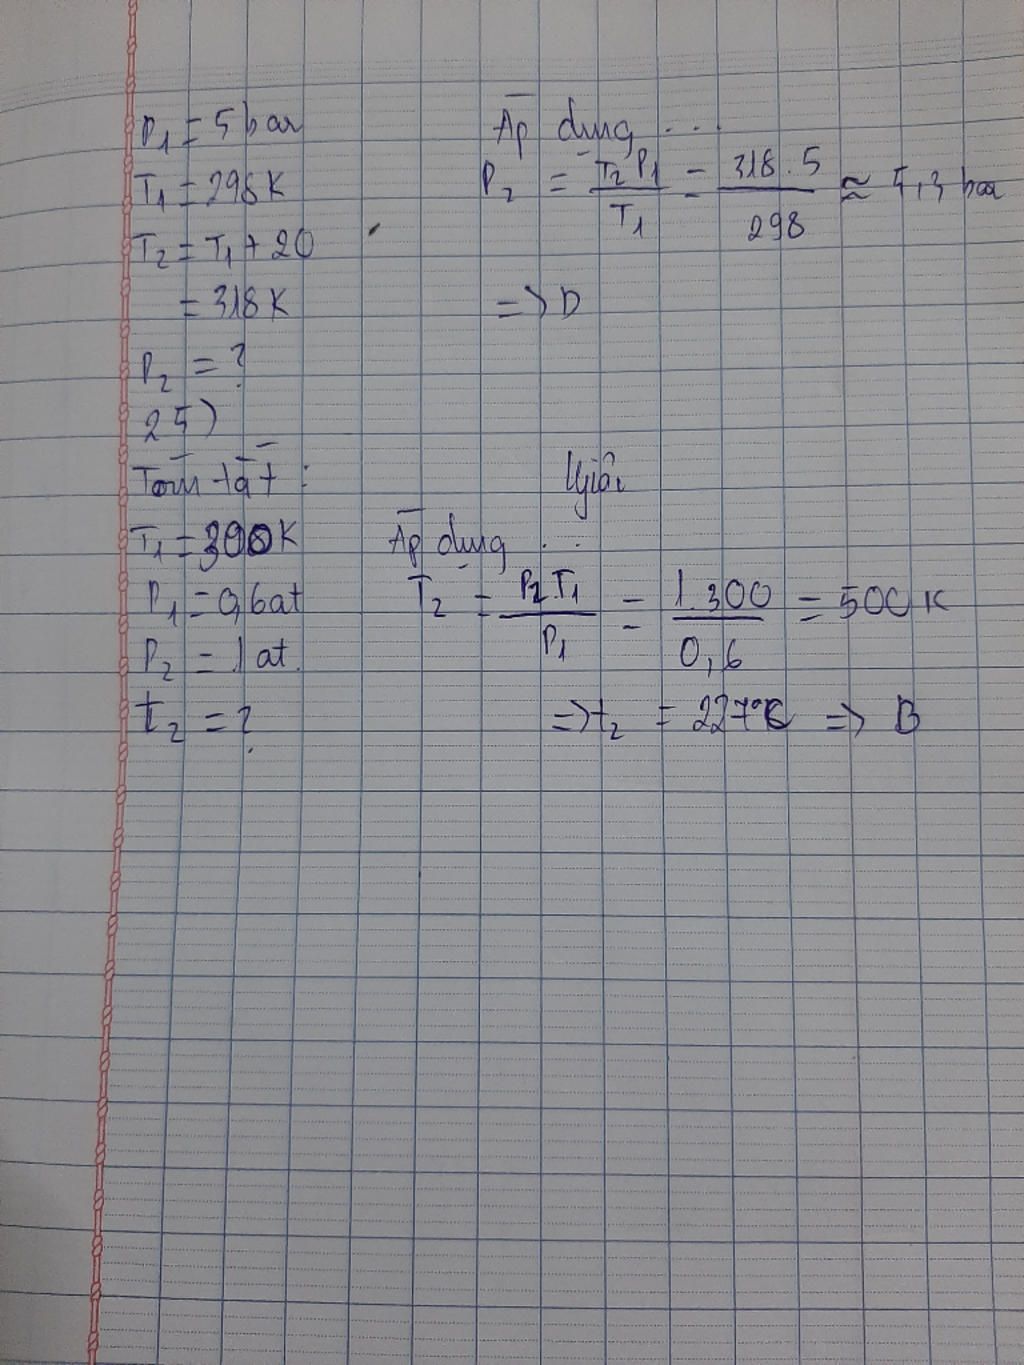 P₁ = 5 bar
T₁ = 298K
T₂ = T₁ + 20
= 318K
P₂ = ?
Áp dụng ...
P₂ = T₂P₁/T₁ = 318.5/298 ≈ 5,3 bar
=> D
25)
Tóm tắt :
T₁ = 300K
P₁ = 0,6at
P₂ = 1 at
t₂ = ?
Giải
Áp dụng ...
T₂ = P₂T₁/P₁ = 1.300/0,6 = 500K
=> t₂ = 227°C => B